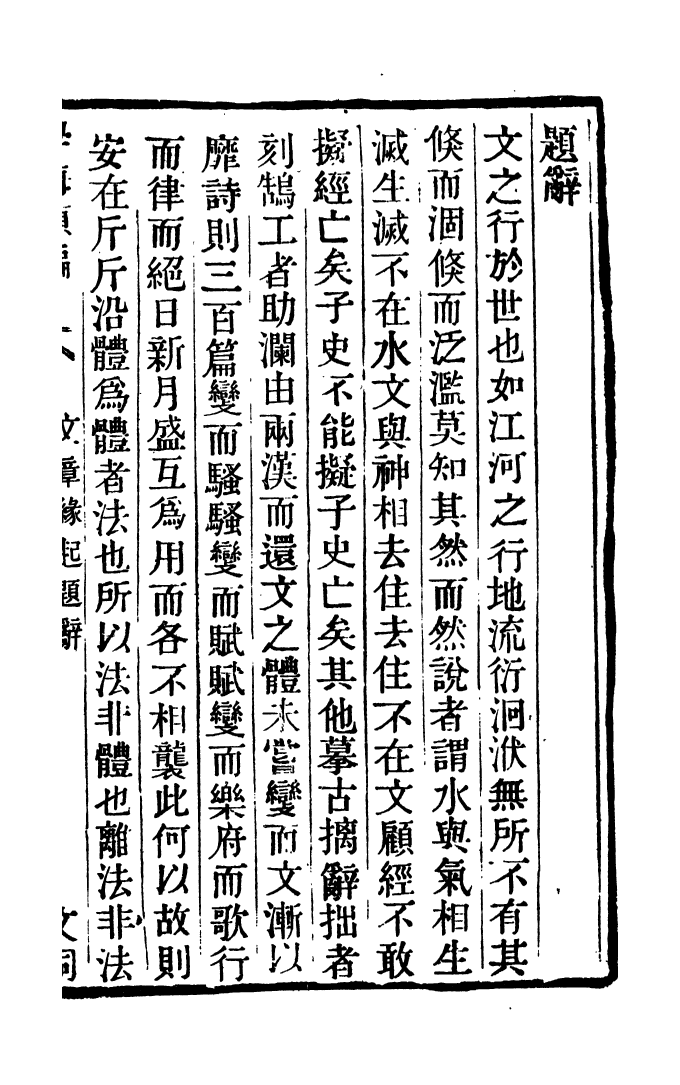 題辭
文之行於世也如江河之行地流衍洄洑無所不有其
倐而涸倐而泛濫莫知其然而然說者謂水與氣相生
滅生滅不在水文與神相去住去住不在文顧經不敢
擬經亡矣子史不能擬子史亡矣其他摹古摛辭拙者
刻鵠工者助瀾由兩漢而還文之體未嘗變而文漸以
靡詩則三百篇變而騷騷變而賦賦變而樂府而歌行
而律而絕日新月盛互爲用而各不相襲此何以故則
安在斤斤沿體爲體者法也所以法非體也離法非法
文章緣起題辭